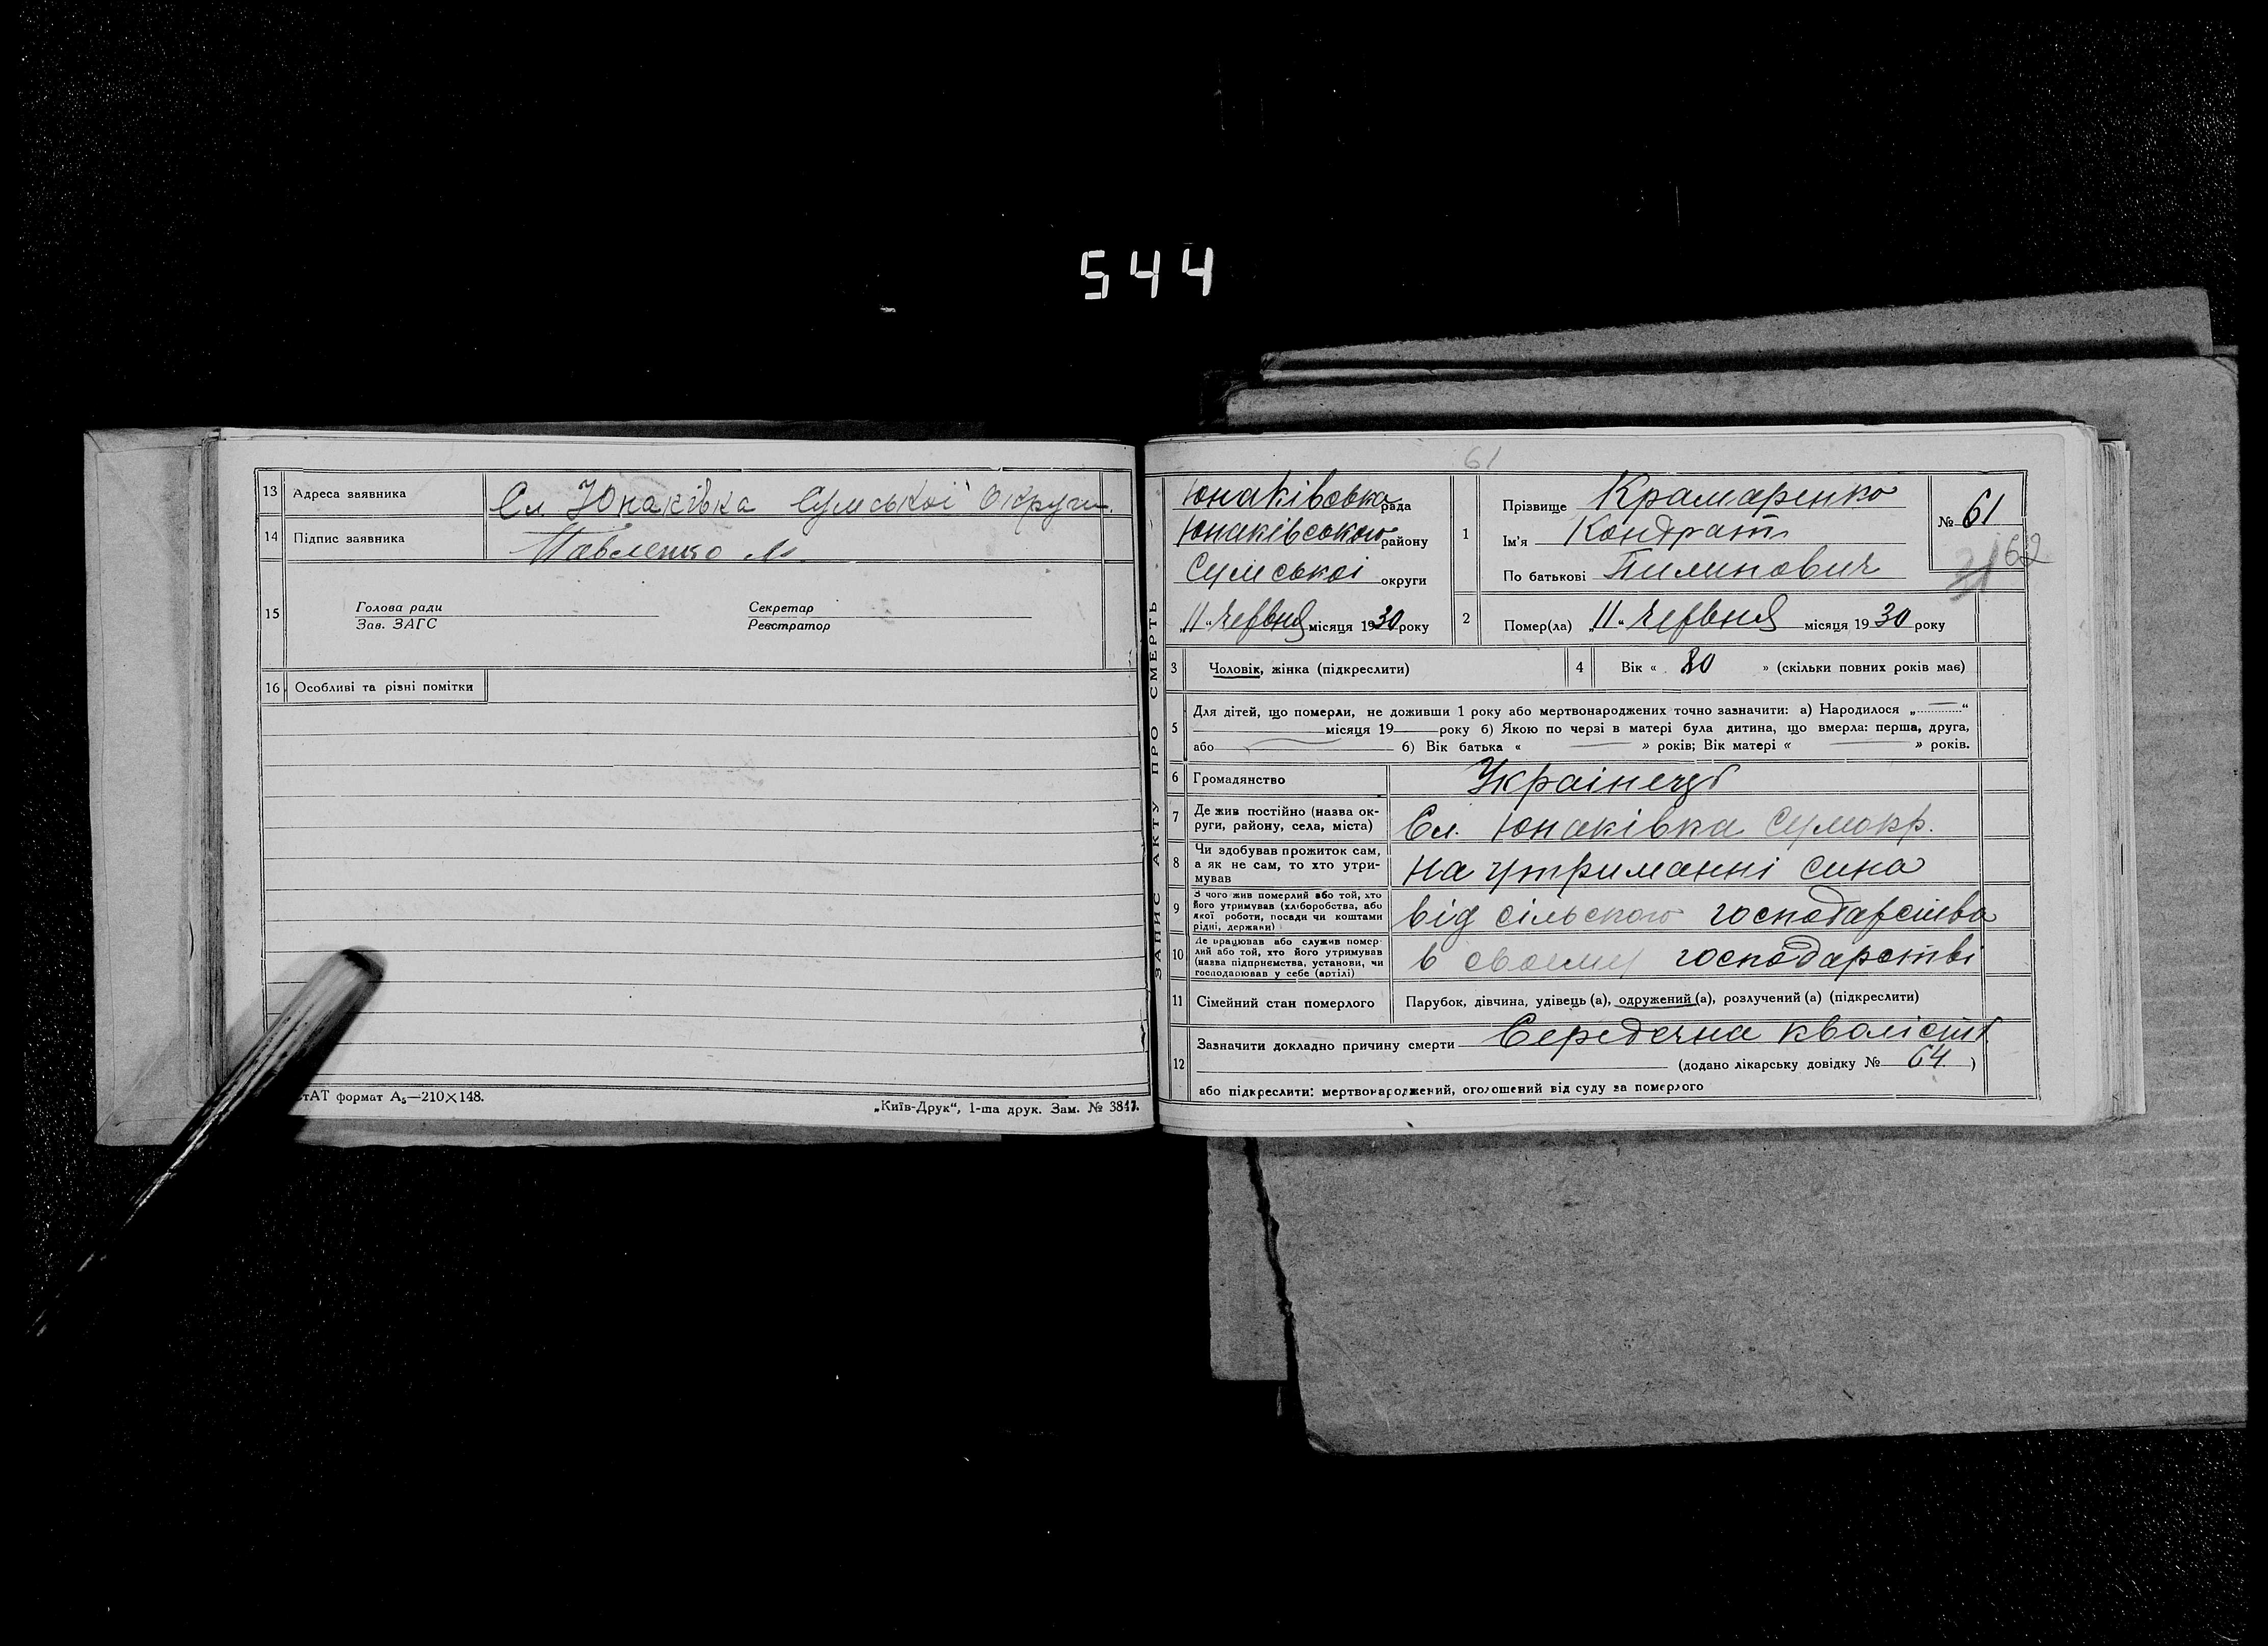 544
13 Адреса заявника Сл Юнаківка Сумської Округи.
14 Підпис заявника Павленко М.
15 Голова ради Секретар
Зав. ЗАГС Реєстратор
16 Особливі та різні помітки
формат А5—210×148.
„Київ-Друк“, 1-ша друк. Зам. № 3847.
ЗАПИС АКТУ ПРО СМЕРТЬ
61
Юнаківська рада
Юнаківського району
Сумської округи
„11“ червня місяця 1930 року
1 Прізвище Крамаренко
Ім'я Кондрат
По батькові Пилипович
№ 61
62
2 Помер(ла) „11“ червня місяця 1930 року
3 Чоловік, жінка (підкреслити)
4 Вік « 80 » (скільки повних років має)
5 Для дітей, що померли, не доживши 1 року або мертвонароджених точно зазначити: а) Народилося „ “
місяця 19 року б) Якою по черзі в матері була дитина, що вмерла: перша, друга,
або б) Вік батька « » років; Вік матері « » років.
6 Громадянство Украінець
7 Де жив постійно (назва ок-
руги, району, села, міста) Сл. Юнаківка Сумокр.
8 Чи здобував прожиток сам,
а як не сам, то хто утри-
мував на утриманні сина
9 З чого жив померлий або той, хто
його утримував (хліборобства, або
якої роботи, посади чи коштами
рідні, держави) від сільского господарства
10 Де працював або служив помер-
лий або той, хто його утримував
(назва підприємства, установи, чи
господарював у себе (артілі) в своему господарстві
11 Сімейний стан померлого Парубок, дівчина, удівець (а), одружений (а), розлучений (а) (підкреслити)
12 Зазначити докладно причину смерти Середечна
(додано лікарську довідку № 64 )
або підкреслити: мертвонароджений, оголошений від суду за померлого